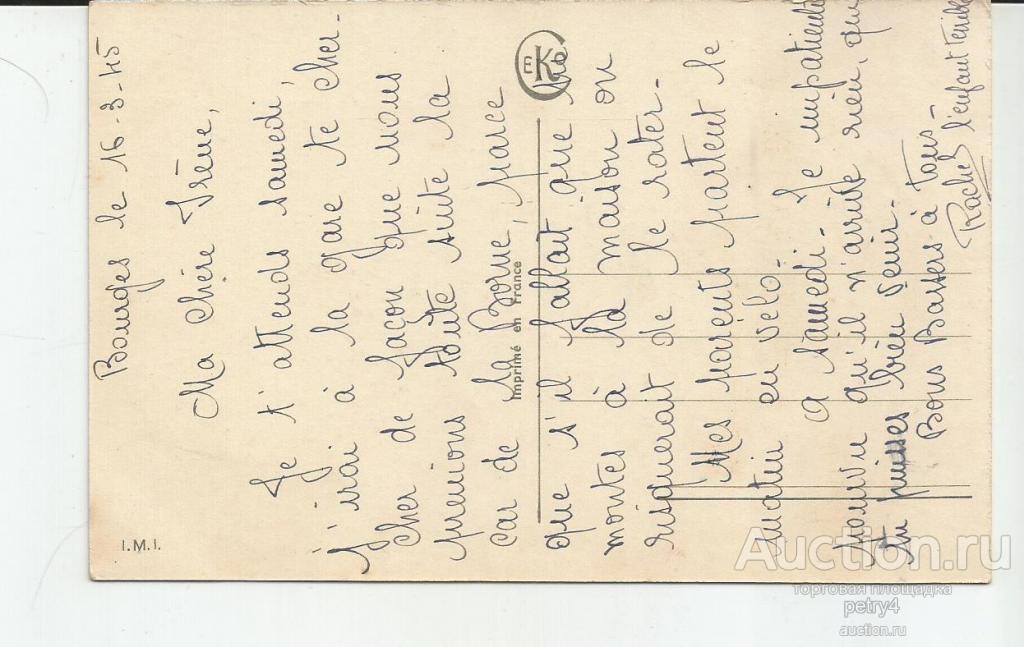 Bourges le 16-3-45
Ma chère Irène,
Je t'attends samedi,
j'irai à la gare te cher-
cher de façon que nous
prenions toute suite la
car de La Borne, parce
que s'il fallait que tu
montes à la maison on
risquerait de le rater.
Mes parents partent le
matin en vélo.
A samedi. Je impatiente
pourvu qu'il n'arrive rien, que
tu puisses bien venir.
Bons Baisers à tous-
Rachel l'enfant terrible
EKO
Imprimé en France
I.M.I.
Auction.ru
торговая площадка
petry4
auction.ru